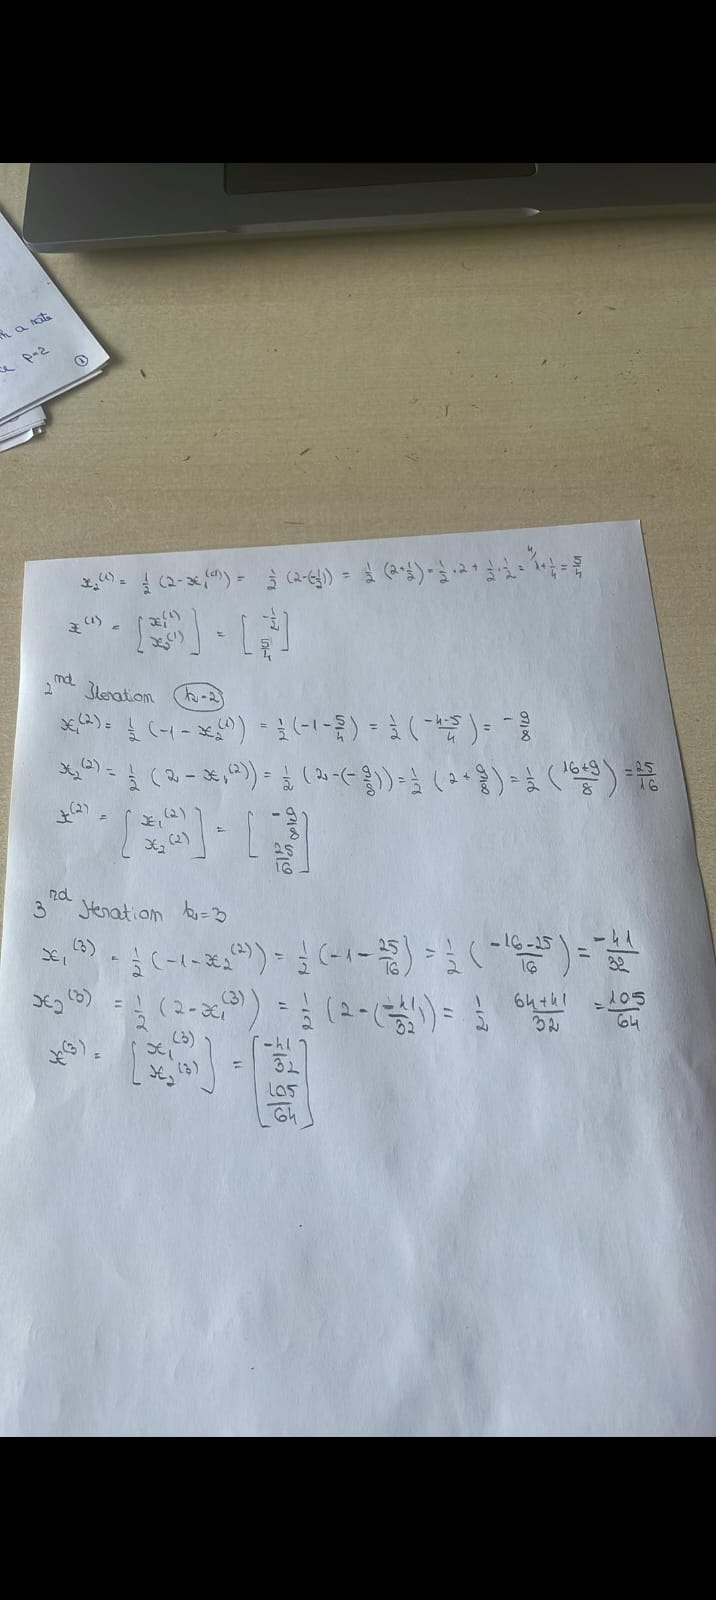 a note
p=2
①
x₂⁽¹⁾ = 1/2 (2-x₁⁽¹⁾) = 1/2 (2-(-1/2)) = 1/2 (2+1/2) = 1/2 · 2 + 1/2 · 1/2 = 1 + 1/4 = 5/4
x⁽¹⁾ = [x₁⁽¹⁾ x₂⁽¹⁾] = [-1/2 5/4]
2nd Iteration k=2
x₁⁽²⁾ = 1/2 (-1 - x₂⁽¹⁾) = 1/2 (-1 - 5/4) = 1/2 (-4-5/4) = -9/8
x₂⁽²⁾ = 1/2 (2 - x₁⁽²⁾) = 1/2 (2-(-9/8)) = 1/2 (2 + 9/8) = 1/2 (16+9/8) = 25/16
x⁽²⁾ = [x₁⁽²⁾ x₂⁽²⁾] = [-9/8 25/16]
3rd Iteration k=3
x₁⁽³⁾ = 1/2 (-1 - x₂⁽²⁾) = 1/2 (-1 - 25/16) = 1/2 (-16-25/16) = -41/32
x₂⁽³⁾ = 1/2 (2 - x₁⁽³⁾) = 1/2 (2 - (-41/32)) = 1/2 64+41/32 = 105/64
x⁽³⁾ = [x₁⁽³⁾ x₂⁽³⁾] = [-41/32 105/64]